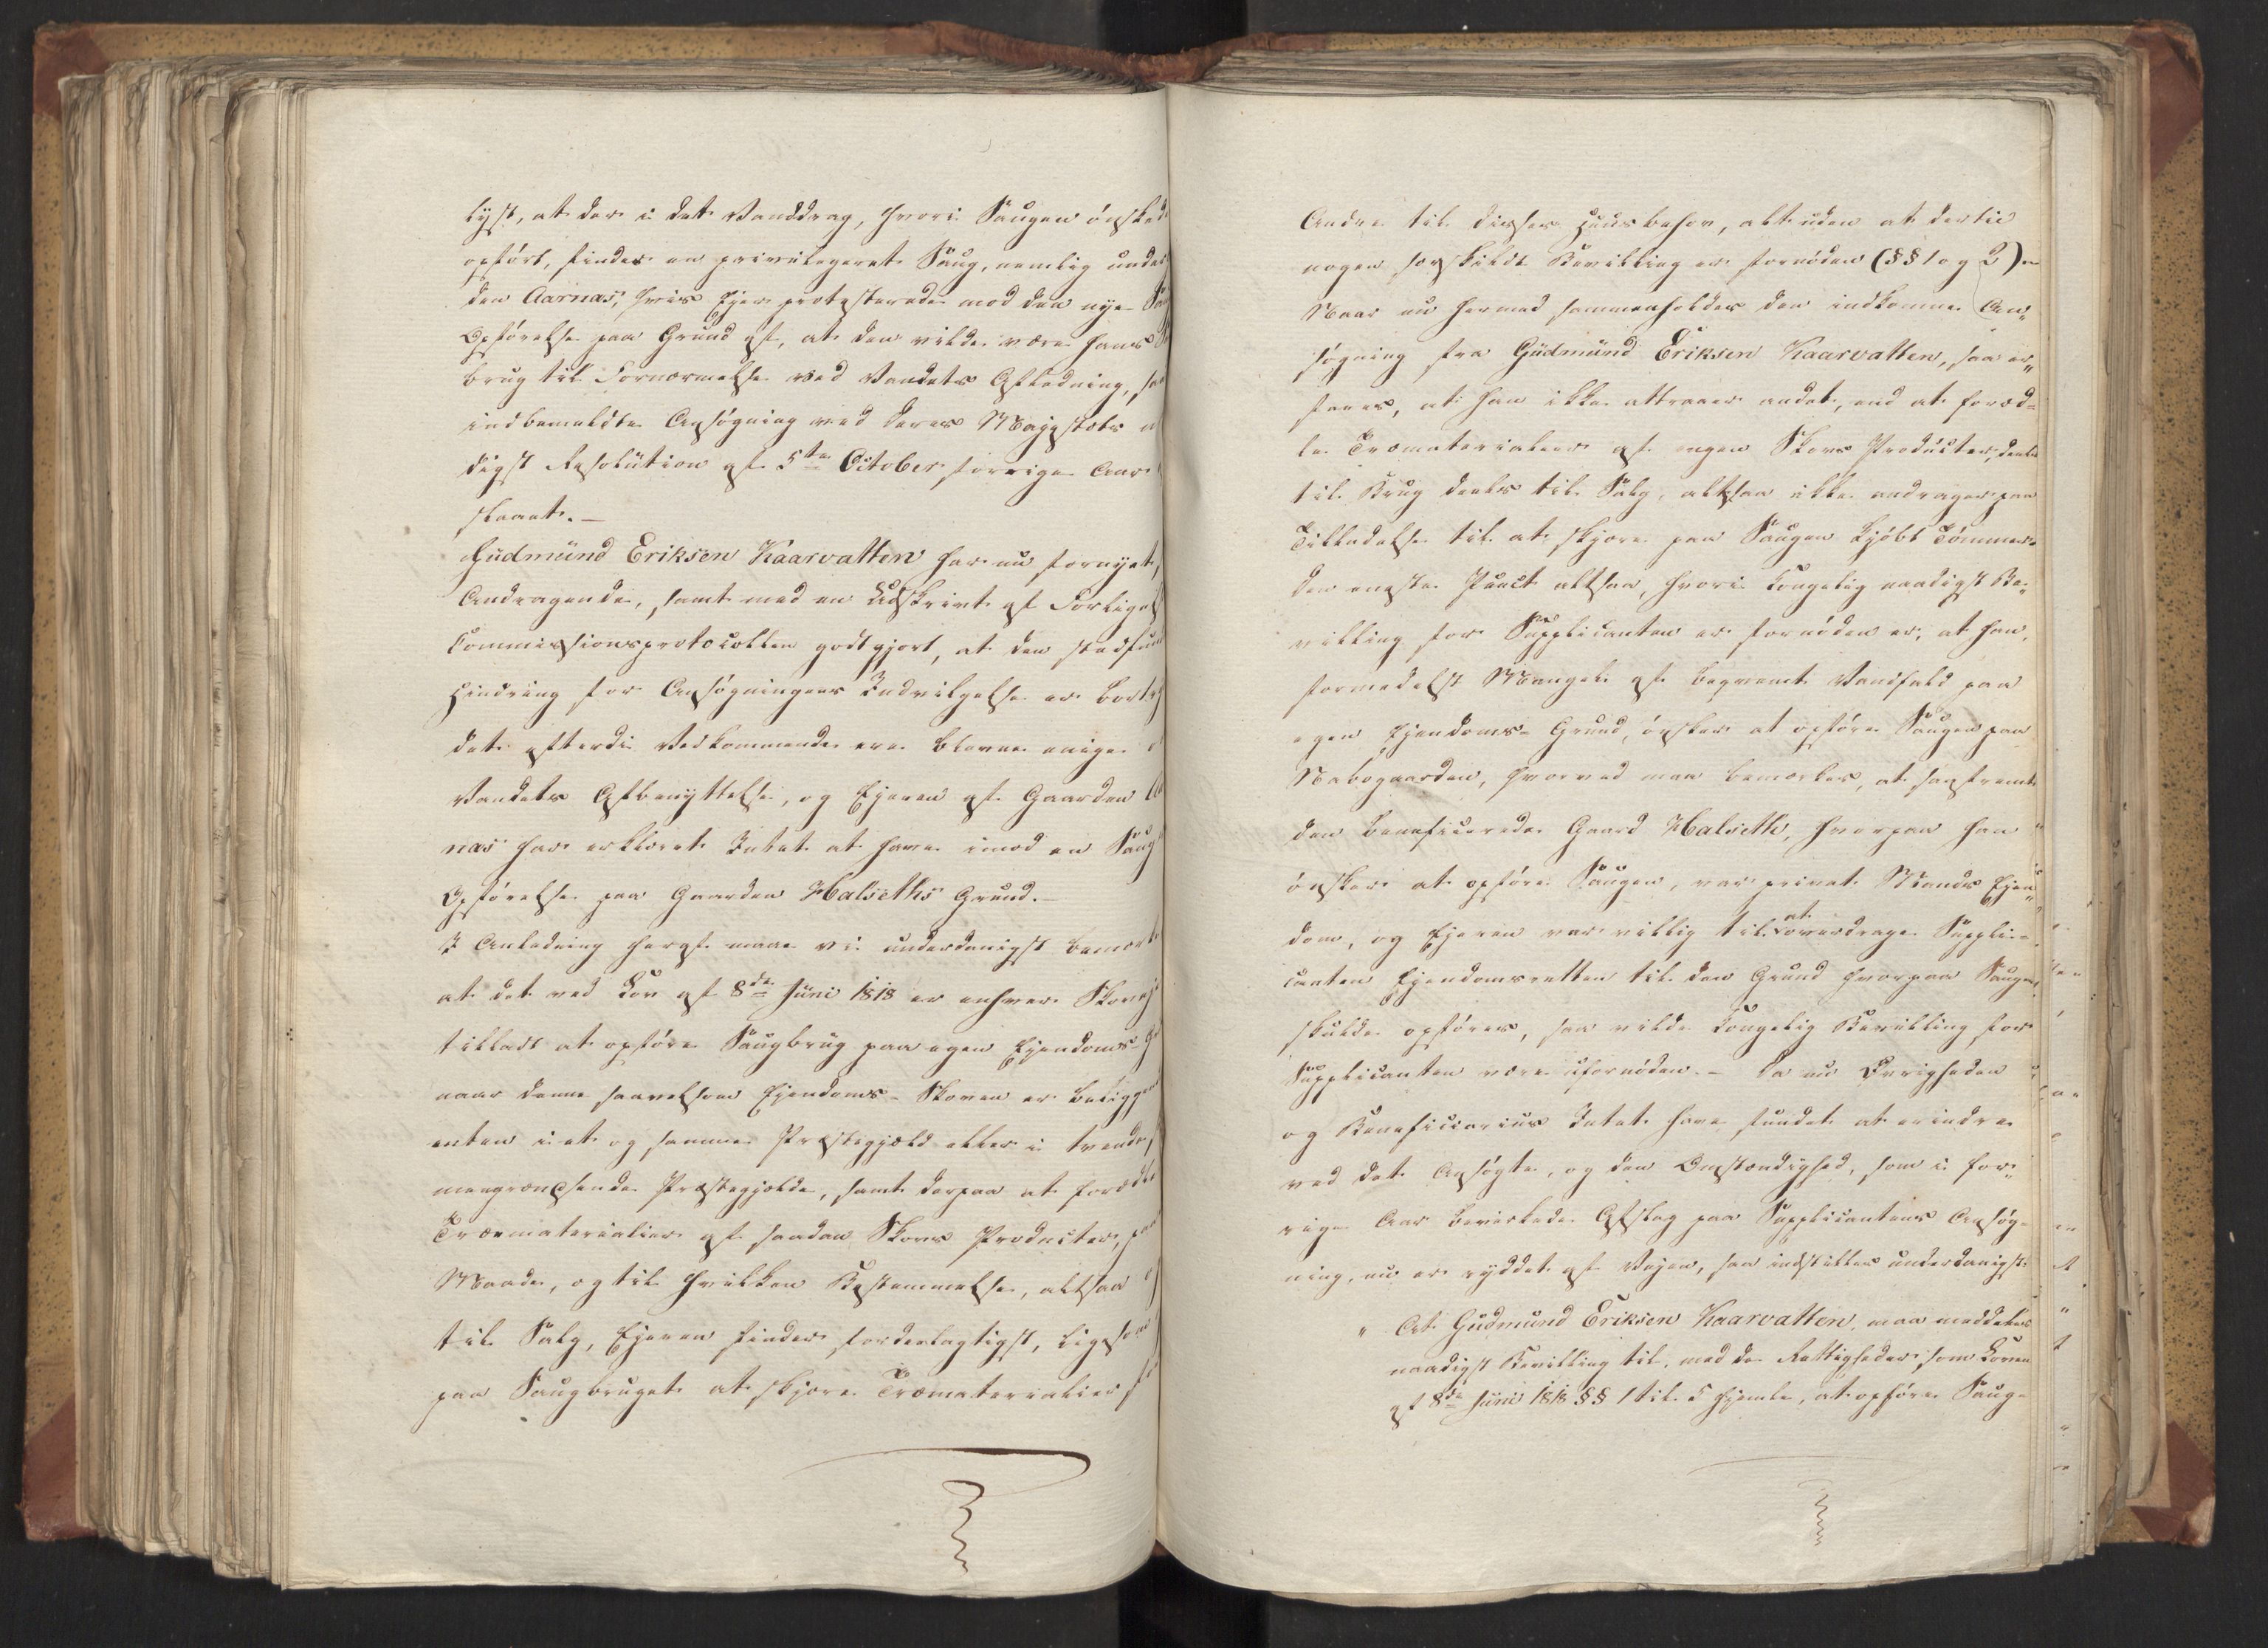 lyst, at der i det Vanddrag, hvori Saugen ønskedes
opført, findes en privilegeret Saug, nemlig under
den Aarnæs, hvis Ejer protesterede mod den nye
Opførelse paa Grund af, at den vilde være hans
brug til Fornærmelse ved Vandets Afledning,
indbemeldte Ansøgning ved Deres Majestæts
digst Resolution af 5te October forrige Aar
slaaet. —
Gudmund Eriksen Kaarvatten har nu fornyet,
Andragende, samt med en Udskrivt af Forligelses
Commissionsprotocollen godtgjort, at den
Hindring for Ansøgningens Indvilgelse er
det efterdi Vedkommende ere blevne enige
Vandets Afbenyttelse, og Ejeren af Gaarden
næs har erklæret Intet at have imod en Saugs
Opførelse paa Gaarden Halseths Grund. —
I Anledning heraf maae vi underdanigst bemærke
at det ved Lov af 8de Juni 1818 er enhver
tilladt at opføre Saugbrug paa egen Ejendoms
naar denne saavelsom Ejendoms-Skoven er beliggende
enten i et og samme Præstegjæld eller i tvende
mengrændsende Præstegjælde, samt derpaa at forædle
Træematerialier af saadan Skovs Producter,
Maade, og til hvilken Bestemmelse, altsaa
til Salg, Ejeren finder fordeelagtigst, ligesom
paa Saugbruget at skjære Træmaterialier
Andre til disses Huusbehov, alt uden at dertil
nogen særskildt Bevilling er fornøden (§§ 1 og 2) —
Naar nu hermed sammenholdes den indkomne An„
søgning fra Gudmund Eriksen Kaarvatten, saa er„
fares, at han ikke attraaer andet, end at foræd-
le Træmaterialier af egen Skovs Producter, deels
til Brug deels til Salg, altsaa ikke andrager paa
Tilladelse til at skjære paa Saugen kjøbt Tømmer.
Den eneste Punct altsaa, hvori Kongelig naadigst Be„
villing for Supplicanten er fornøden er, at han,
formedelst Mangel af beqvemt Vandfald paa
egen Ejendoms-Grund, ønsker at opføre Saugen paa
Nabogaarden, hvorved maa bemærkes, at saafremt
den beneficerede Gaard Halseth, hvorpaa han
ønsker at opføre Saugen, var privat Mands Ejen„
dom, og Ejeren var villig til at overdrage Suppli-
canten Ejendomsretten til den Grund hvorpaa Saugen
skulde opføres, saa vilde Kongelig Bevilling for
Supplicanten være ufornøden. — Da nu Øvrigheden
og Beneficiarius Intet have fundet at erindre
ved det Ansøgte, og den Omstændighed, som i for„
rige Aar bevirkede Afslag paa Supplicantens Ansøg-
ning, nu er ryddet af Vejen, saa indstilles underdanigst:
„ At Gudmund Eriksen Kaarvatten, maa meddeles
naadigst Bevilling til, med de Rettigheder som Loven
af 8de Juni 1818 §§ 1 til 5 hjemle, at opføre Saug-